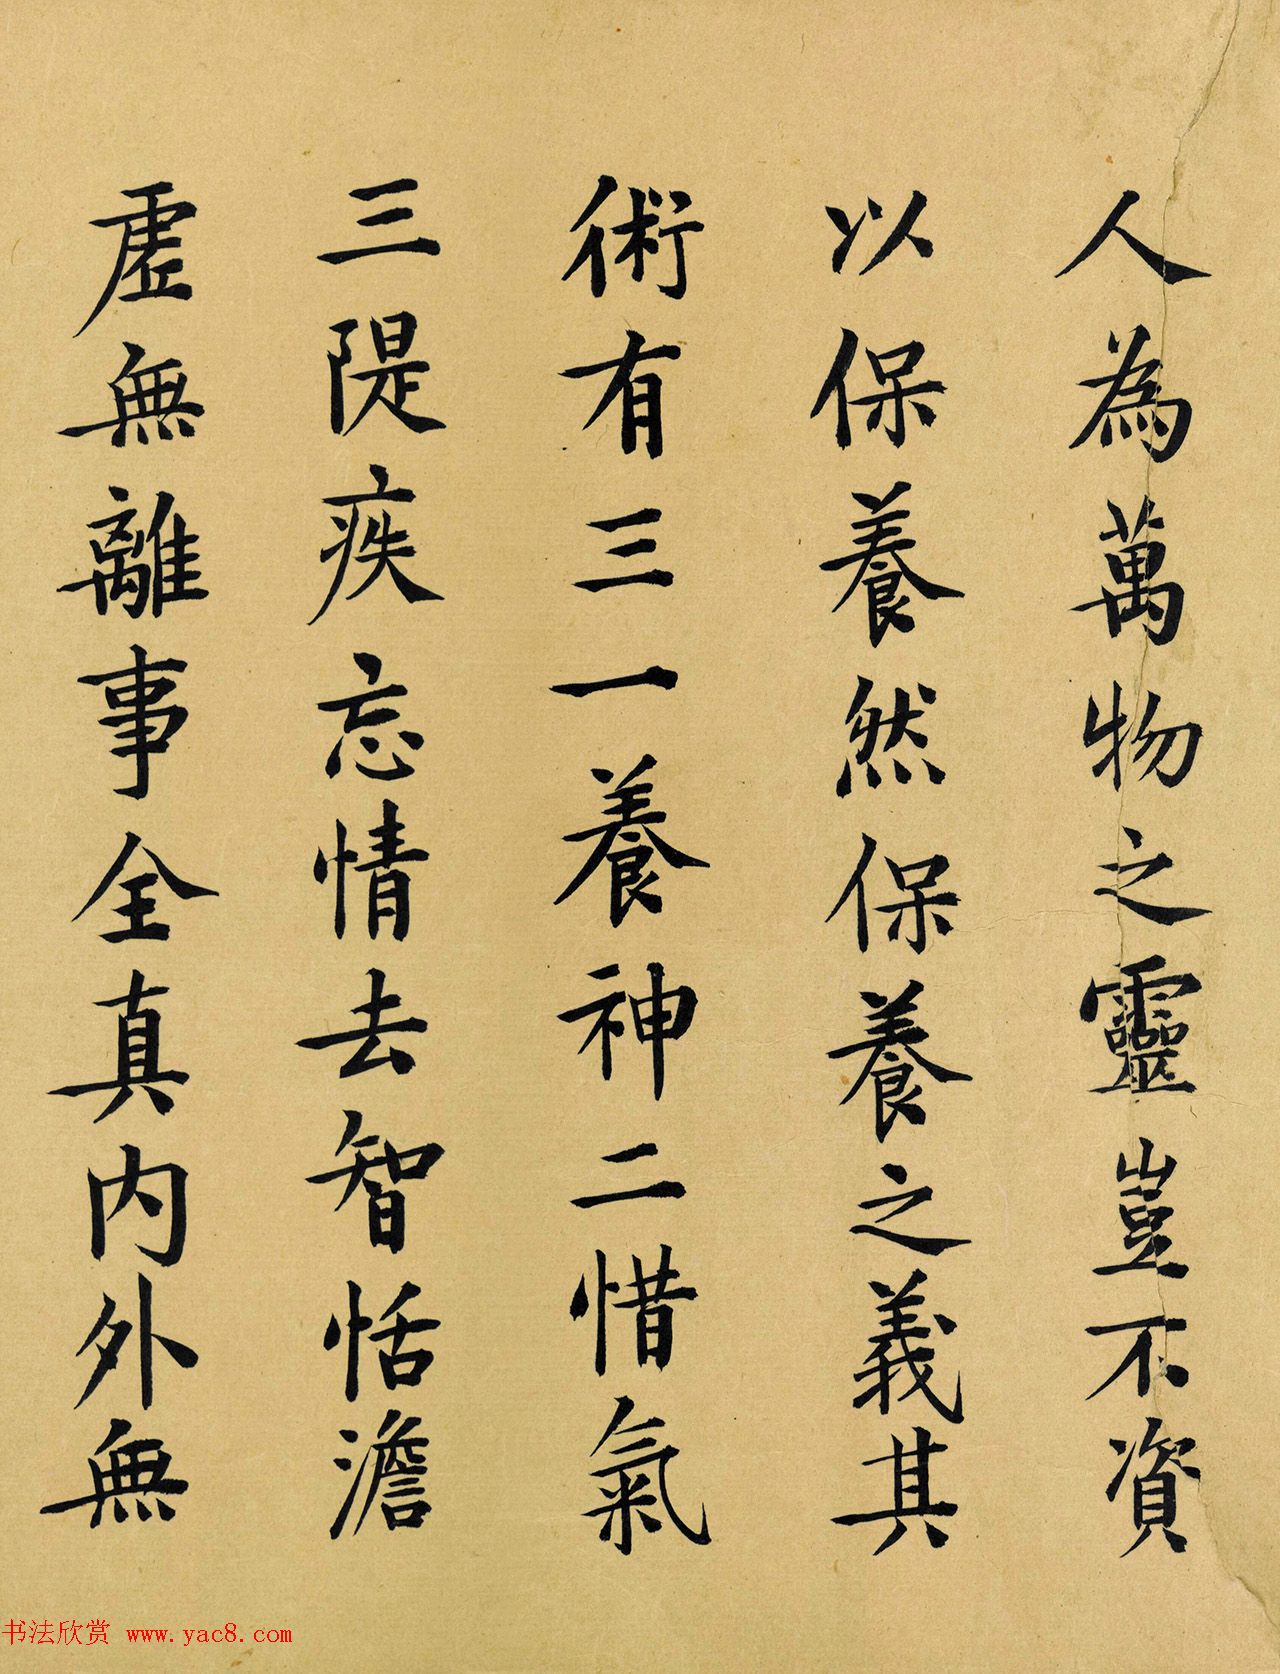 人為萬物之靈豈不資
以保養然保養之義其
術有三一養神二惜氣
三隄疾忘情去智恬澹
虛無離事全真內外無
书法欣赏 www.yac8.com